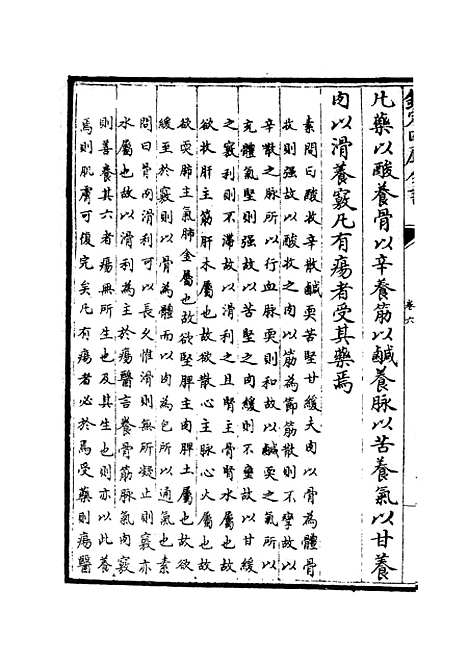 欽定四庫全書
卷六
凡藥以酸養骨以辛養筋以鹹養脉以苦養氣以甘養
肉以滑養竅凡有瘍者受其藥焉
素問曰酸收辛散鹹耎苦堅甘緩夫肉以骨為體骨
收則强故以酸收之肉以筋為節筋散則不攣故以
辛散之脉所以行血脉耎則和故以鹹耎之氣所以
充體氣堅則强故以苦堅之肉緩則不壅故以甘緩
之竅利則不滯故以滑利之且腎主骨腎水屬也故
欲收肝主筋肝木屬也故欲散心主脉心火屬也故
欲耎肺主氣肺金屬也故欲堅脾主肉脾土屬也故欲
緩至於竅則以骨為體而以肉為包所以通氣也素
問曰骨肉滑利可以長久惟滑則無所凝止則竅亦
水屬也故以滑利為主於瘍醫言養骨筋脉氣肉竅
則善養其六者瘍無所生也及其生也則亦以此養
焉則肌膚可復完矣凡有瘍者必於焉受藥則瘍醫